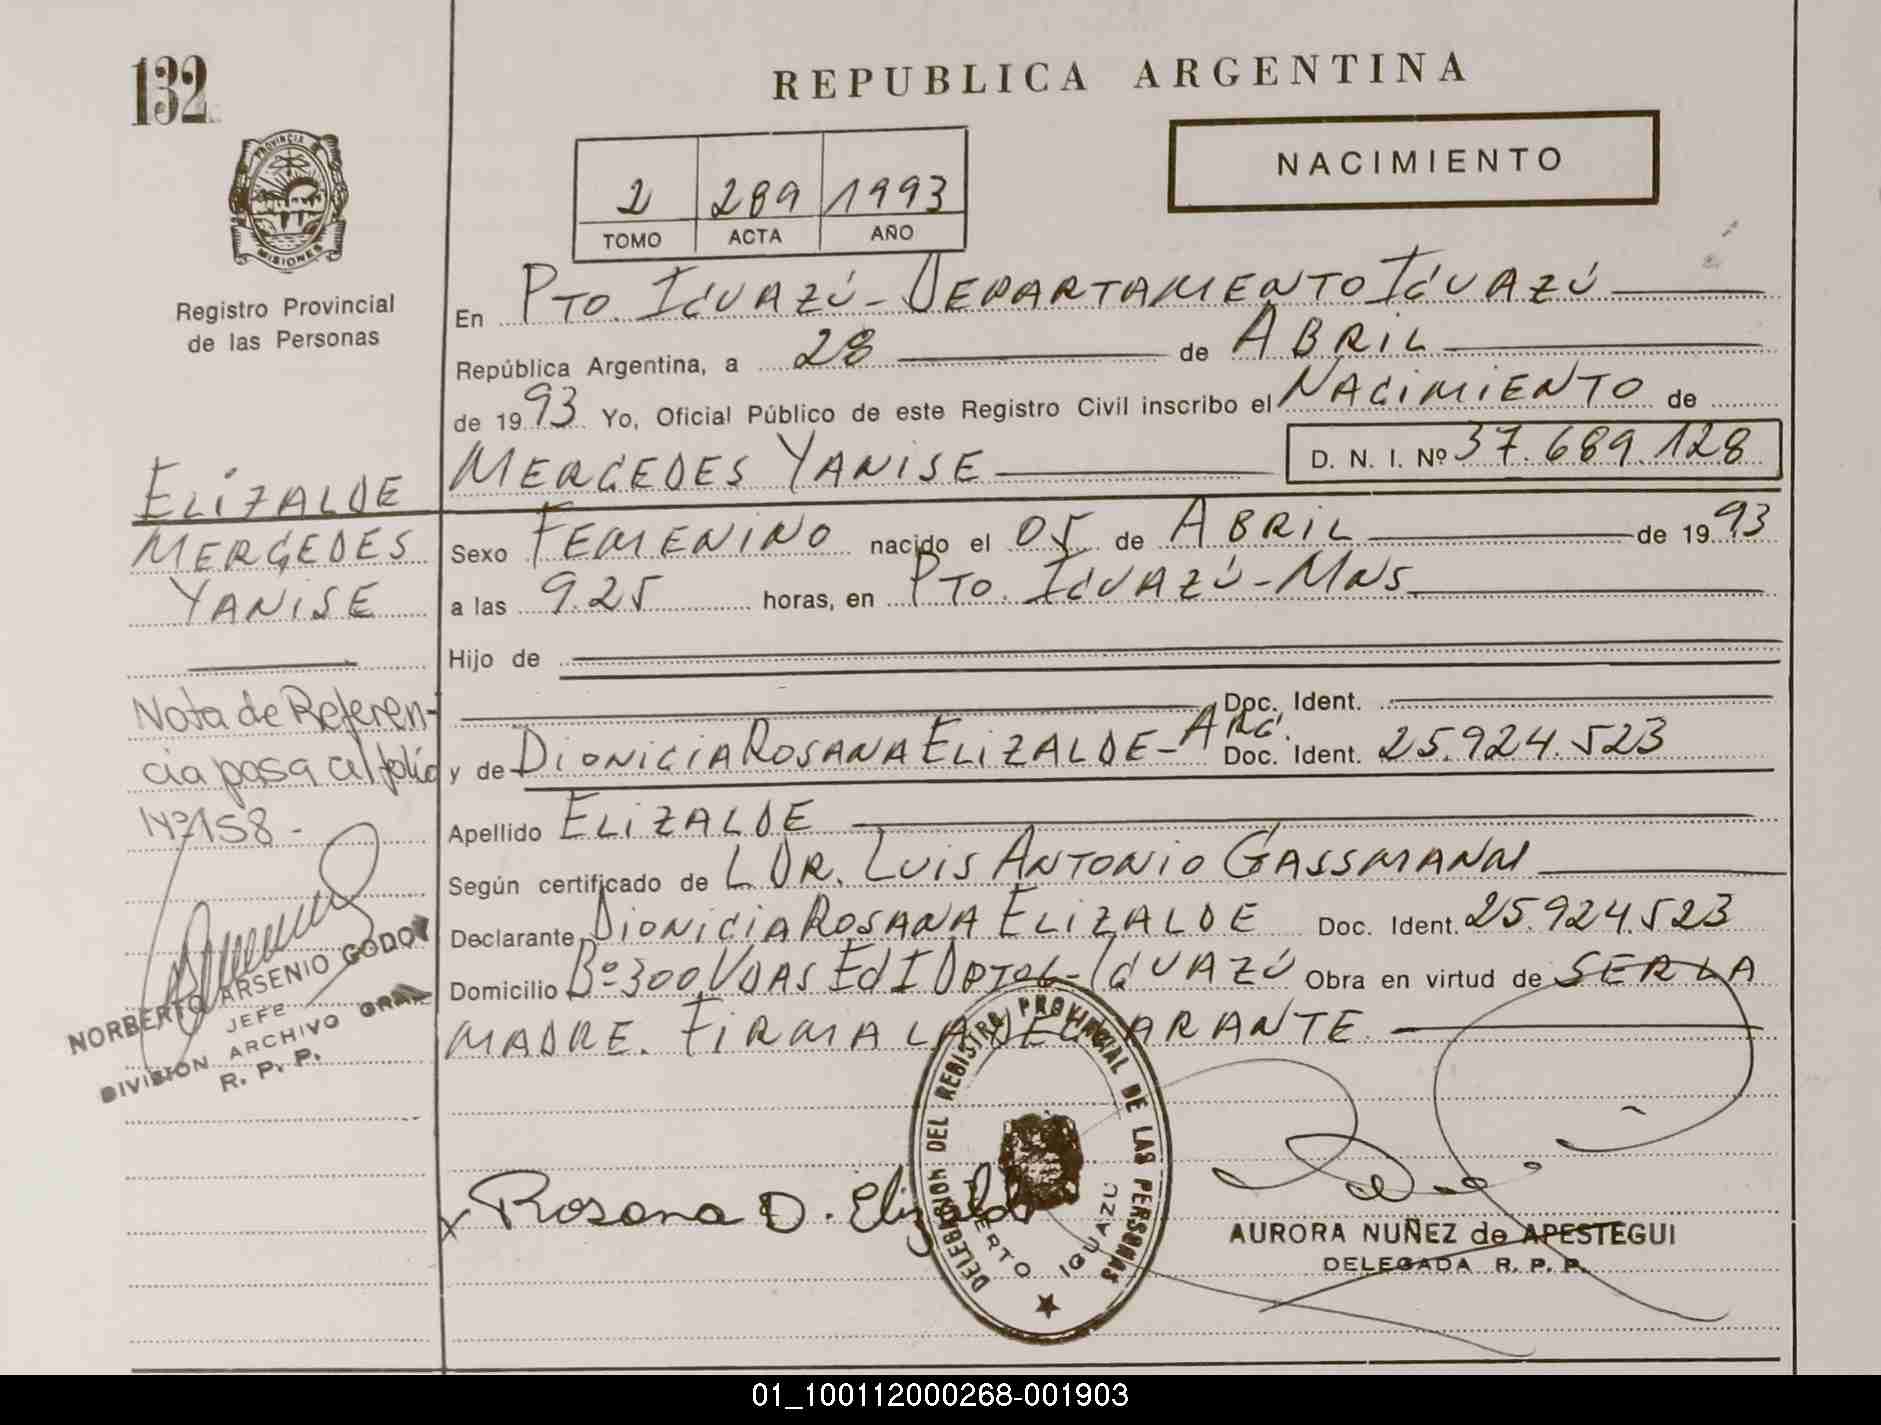 132
REPUBLICA ARGENTINA
NACIMIENTO
2 289 1993
TOMO ACTA AÑO
PROVINCIA
MISIONES
Registro Provincial
de las Personas
En Pto. Iguazú - Departamento Iguazú
República Argentina, a 28 de Abril
de 1993 Yo, Oficial Público de este Registro Civil inscribo el Nacimiento de
Mercedes Yanise D. N. I. Nº 37.689.128
Elizalde
Mercedes
Yanise
Sexo Femenino nacido el 05 de Abril de 1993
a las 9.25 horas, en Pto. Iguazú - Mns
Hijo de
Doc. Ident.
y de Dionicia Rosana Elizalde - Arg. Doc. Ident. 25.924.523
Apellido Elizalde
Según certificado de L Dr. Luis Antonio Gassmann
Declarante Dionicia Rosana Elizalde Doc. Ident. 25.924.523
Domicilio Bº 300 Vdas Ed I Dpto 6 - Iguazú Obra en virtud de ser la
madre. Firma la declarante.
Nota de Referen-
cia pasa al folio
Nº 158 -
NORBERTO ARSENIO GODOY
JEFE
DIVISION ARCHIVO GRAL
R. P. P.
DELEGACION DEL REGISTRO PROVINCIAL DE LAS PERSONAS
PUERTO IGUAZU
x Rosana D. Elizalde
AURORA NUÑEZ de APESTEGUI
DELEGADA R. P. P.
01_100112000268-001903